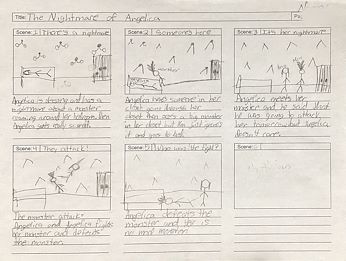 Title: The Nightmare of Angelica
Pg.
Scene: 1 There's a nightmare
Scene: 2 Someone's here
Scene: 3 It's her nightmare!
monster
Angelica is sleeping and has a
nightmare about a monster
roaming around her hallway. Then
Angelica gets really scared.
Angelica hears someone in her
closet
closet then sees a big monster
in her closet but just ignores
it and goes to
Angelica meets her
monster and he said that
he was going to attack
her tomorrow but Angelica
doesn't care.
Scene: 4 They attack!
Scene: 5 Who won the fight?
Scene: 6
The monster attacks
Angelica and Angelica fights
her monster and defeats
the monster.
Angelica defeats the
monster and there is
no more monster.